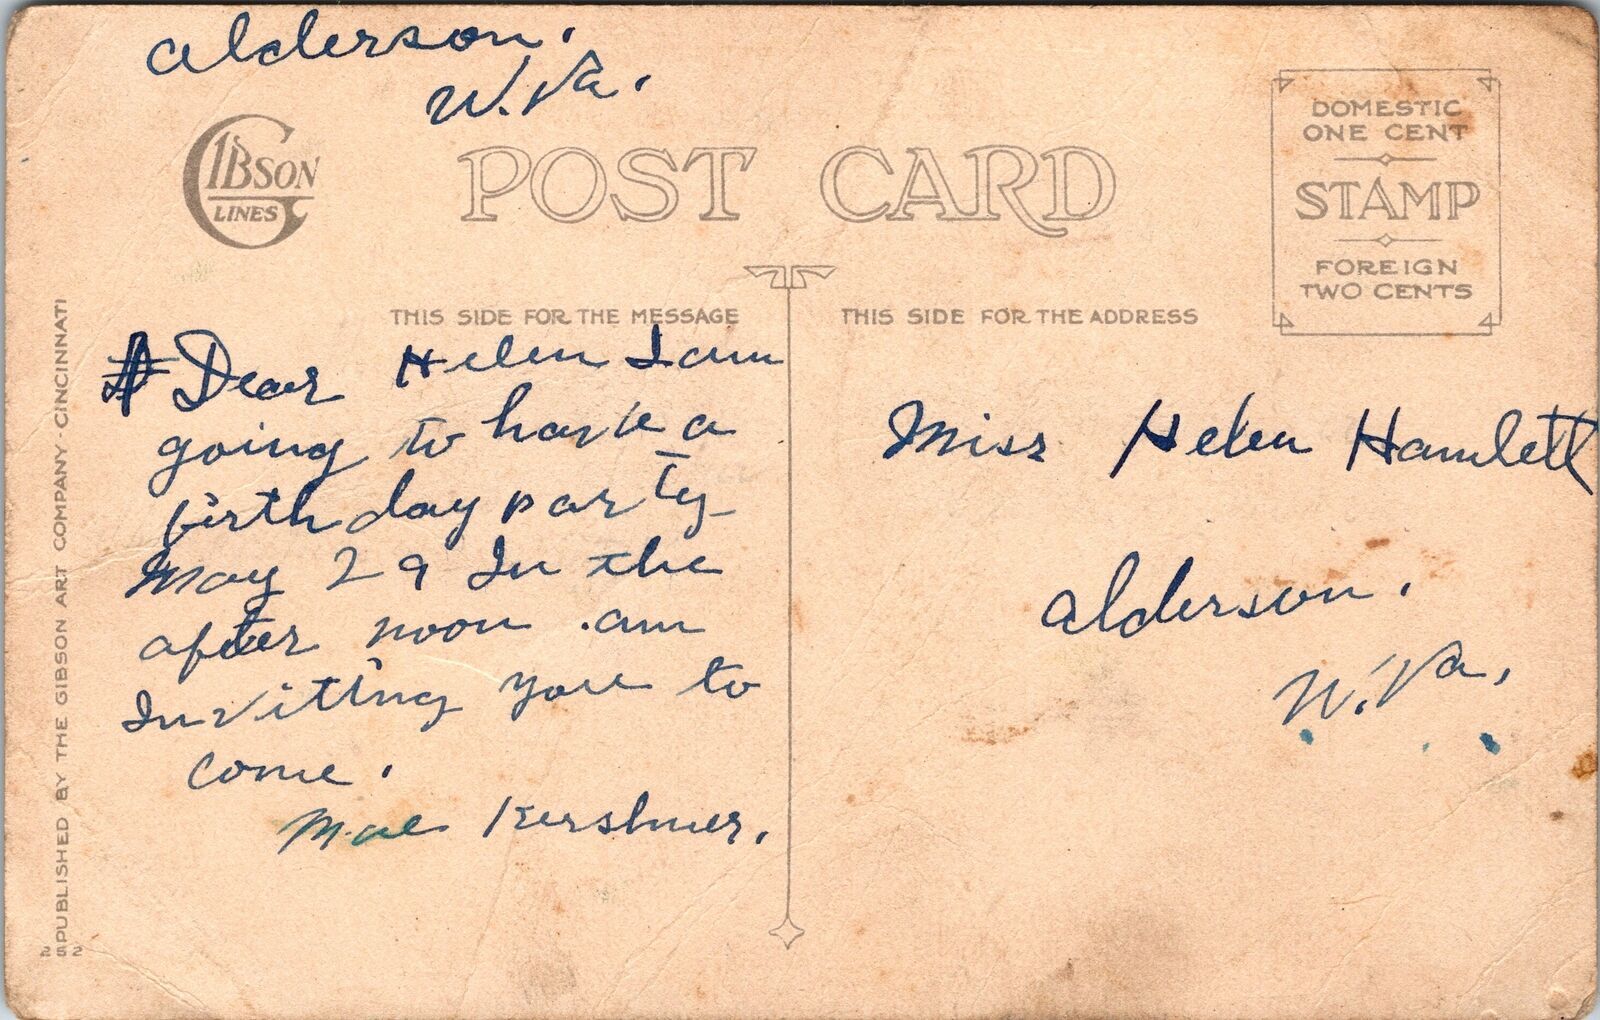 Alderson.
W. Va.
GIBSON
LINES
POST CARD
DOMESTIC
ONE CENT
STAMP
FOREIGN
TWO CENTS
THIS SIDE FOR THE MESSAGE
THIS SIDE FOR THE ADDRESS
Dear Helen I am
going to have a
birth day party
May 29 In the
after noon . am
Inviting you to
come.
Mae Kershner.
Miss Helen Hamlett
Alderson.
W. Va.
PUBLISHED BY THE GIBSON ART COMPANY - CINCINNATI
252